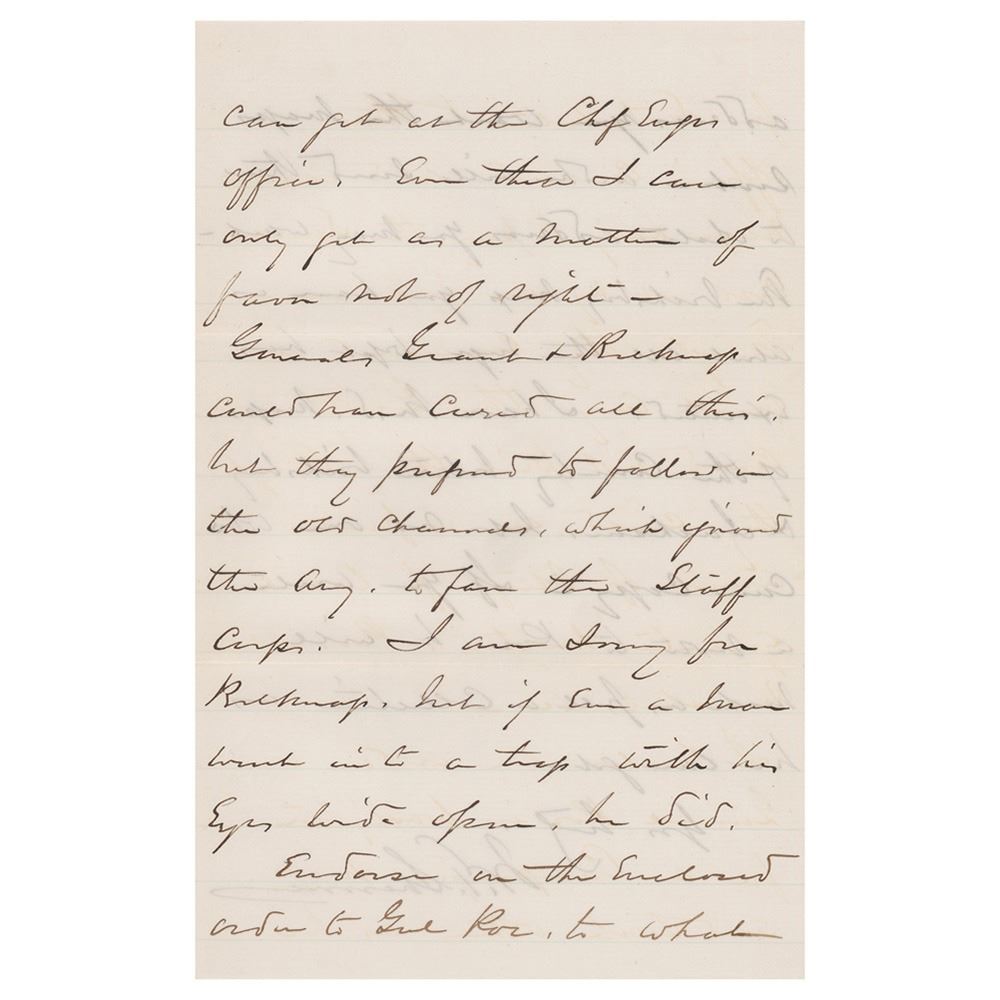 can get at the Chf Engrs
office. Even these I can
only get as a matter of
favor not of right —
Generals Grant & Belknap
could have cured all this.
but they preferred to follow in
the old channels, which ground
the Army. to favor the Staff
Corps. I am Sorry for
Belknap. but if Ever a man
went into a trap with his
Eyes wide open. he did.
Endorse on the Enclosed
order to Genl Poe. to what